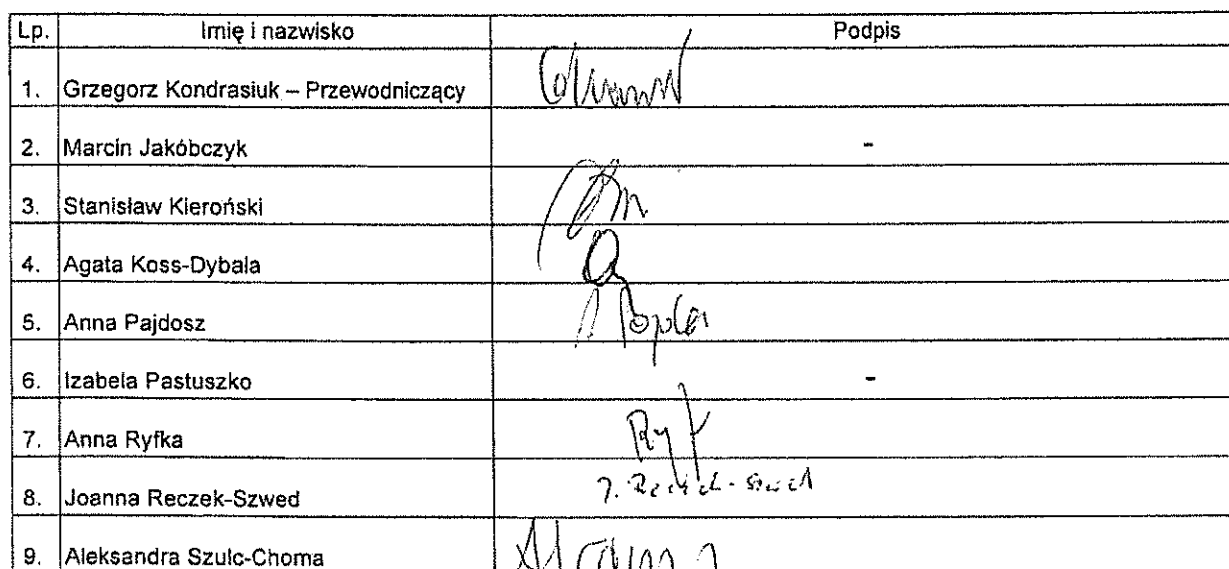 Lp. Imię i nazwisko Podpis
1. Grzegorz Kondrasiuk – Przewodniczący
2. Marcin Jakóbczyk -
3. Stanisław Kieroński
4. Agata Koss-Dybala
5. Anna Pajdosz
6. Izabela Pastuszko -
7. Anna Ryfka Ryf
8. Joanna Reczek-Szwed J. Reczek-Szwed
9. Aleksandra Szulc-Choma